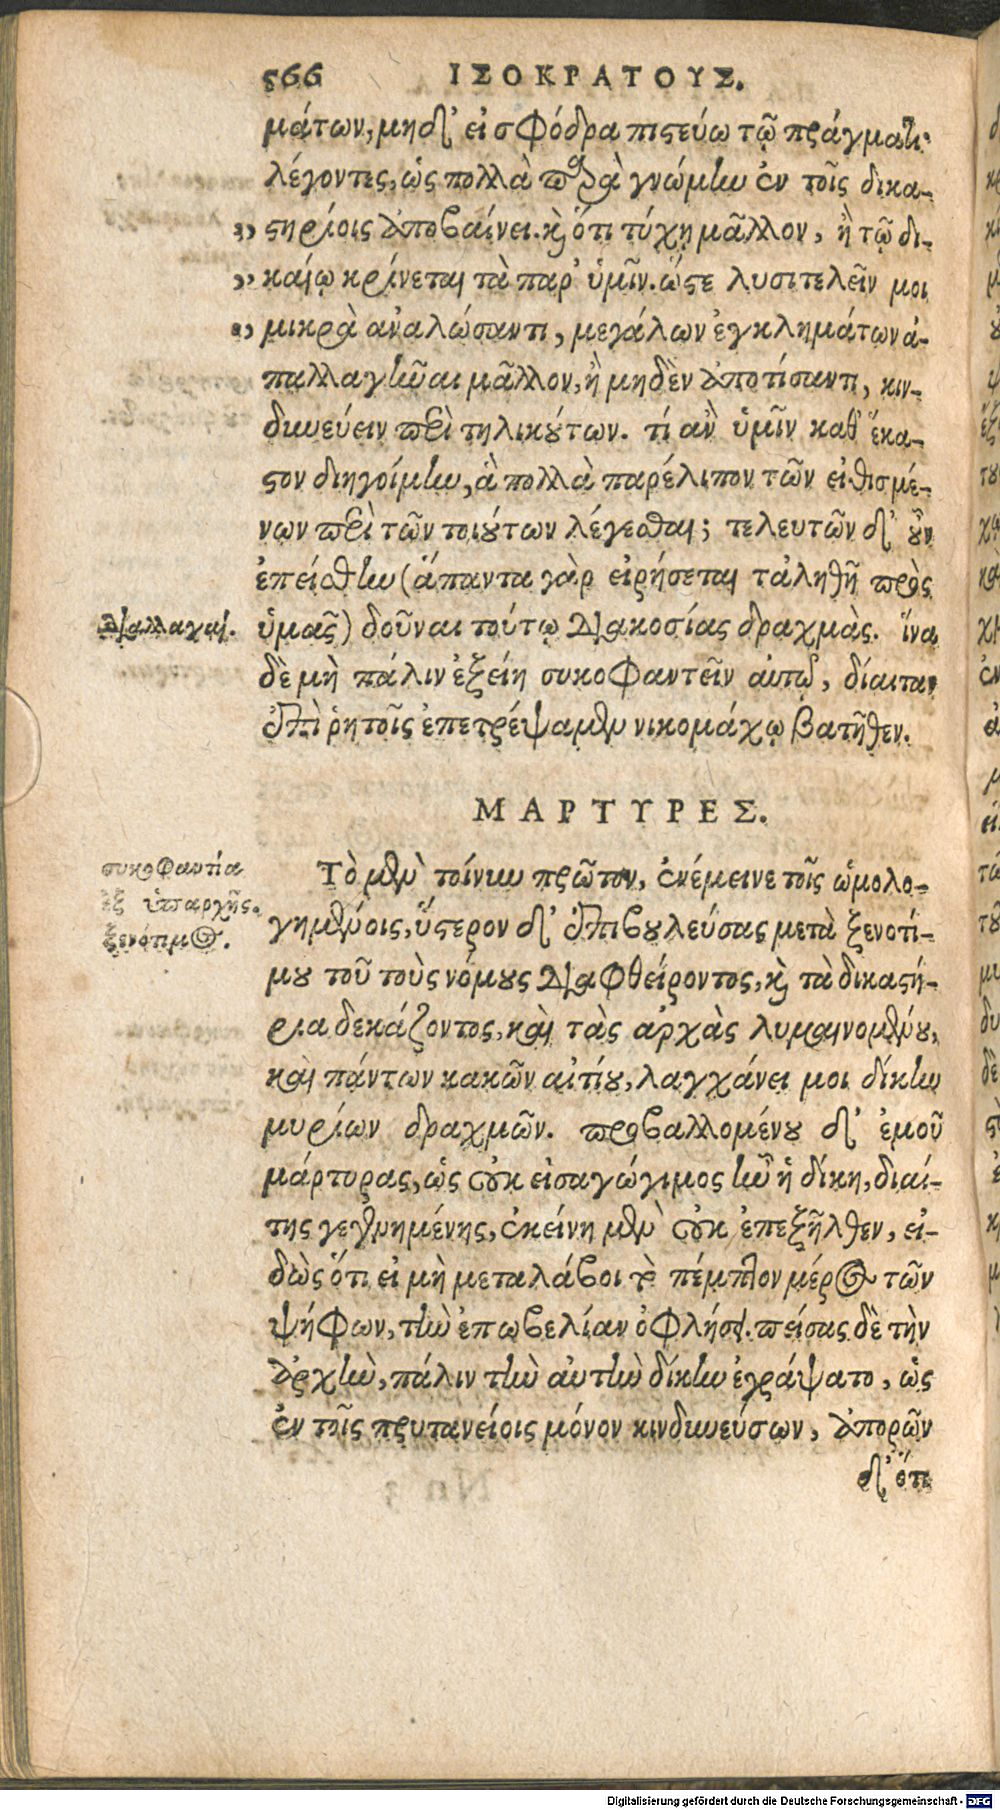 566 ΙΣΟΚΡΑΤΟΥΣ.
μάτων, μηδ' εἰ σφόδρα πιστεύω τῷ πράγματι·
λέγοντες, ὡς πολλὰ παρὰ γνώμην ἐν τοῖς δικα-
στηρίοις ἀποβαίνει. καὶ ὅτι τύχῃ μᾶλλον, ἢ τῷ δι-
καίῳ κρίνεται τὰ παρ' ὑμῖν. ὥστε λυσιτελεῖν μοι
μικρὰ ἀναλώσαντι, μεγάλων ἐγκλημάτων ἀ-
παλλαγῆναι μᾶλλον, ἢ μηδὲν ἀποτίσαντι, κιν-
δυνεύειν περὶ τηλικούτων. τί ἂν ὑμῖν καθ' ἕκα-
στον διηγοίμην, ἃ πολλὰ παρέλιπον τῶν εἰθισμέ-
νων περὶ τῶν τοιούτων λέγεσθαι; τελευτῶν δ' οὖν
ἐπείσθην (ἅπαντα γὰρ εἰρήσεται τἀληθῆ πρὸς
Διαλλαγαί.
ὑμᾶς) δοῦναι τούτῳ διακοσίας δραχμὰς. ἵνα
δὲ μὴ πάλιν ἐξείη συκοφαντεῖν αὐτῷ, δίαιταν
ἐπὶ ῥητοῖς ἐπετρέψαμεν νικομάχῳ βατῆθεν.
ΜΑΡΤΥΡΕΣ.
συκοφαντία
ἐξ ὑπαρχῆς.
ξενότιμος.
Τὸ μὲν τοίνυν πρῶτον, ἐνέμεινε τοῖς ὡμολο-
γημένοις, ὕστερον δ' ἐπιβουλεύσας μετὰ ξενοτί-
μου τοῦ τοὺς νόμους διαφθείροντος, καὶ τὰ δικαστή-
ρια δεκάζοντος, καὶ τὰς ἀρχὰς λυμαινομένου,
καὶ πάντων κακῶν αἰτίου, λαγχάνει μοι δίκην
μυρίων δραχμῶν. προβαλλομένου δ' ἐμοῦ
μάρτυρας, ὡς οὐκ εἰσαγώγιμος ἦν ἡ δίκη, διαί-
της γεγενημένης, ἐκείνῃ μὲν οὐκ ἐπεξῆλθεν, εἰ-
δὼς ὅτι εἰ μὴ μεταλάβοι τὸ πέμπτον μέρος τῶν
ψήφων, τὴν ἐπωβελίαν ὀφλήσει. πείσας δὲ τὴν
ἀρχὴν, πάλιν τὴν αὐτὴν δίκην ἐγράψατο, ὡς
ἐν τοῖς πρυτανείοις μόνον κινδυνεύσων, ἀπορῶν
δ' ὅτι
Digitalisierung gefördert durch die Deutsche Forschungsgemeinschaft - DFG